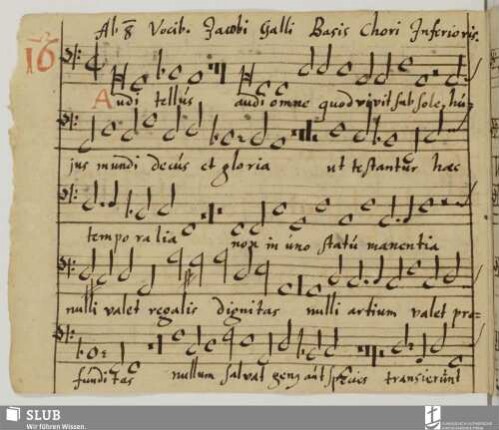 Ab 8 Vocib. Jacobi Galli Basis Chori Inferioris.
16
Audi tellus audi omne quod vivit sub sole, hu
jus mundi decus et gloria ut testantur hæc
tempora lia non in uno statu manentia
nulli valet regalis dignitas nulli artium valet pro=
funditas nullum salvat genus aut species transierunt
SLUB
Wir führen Wissen.